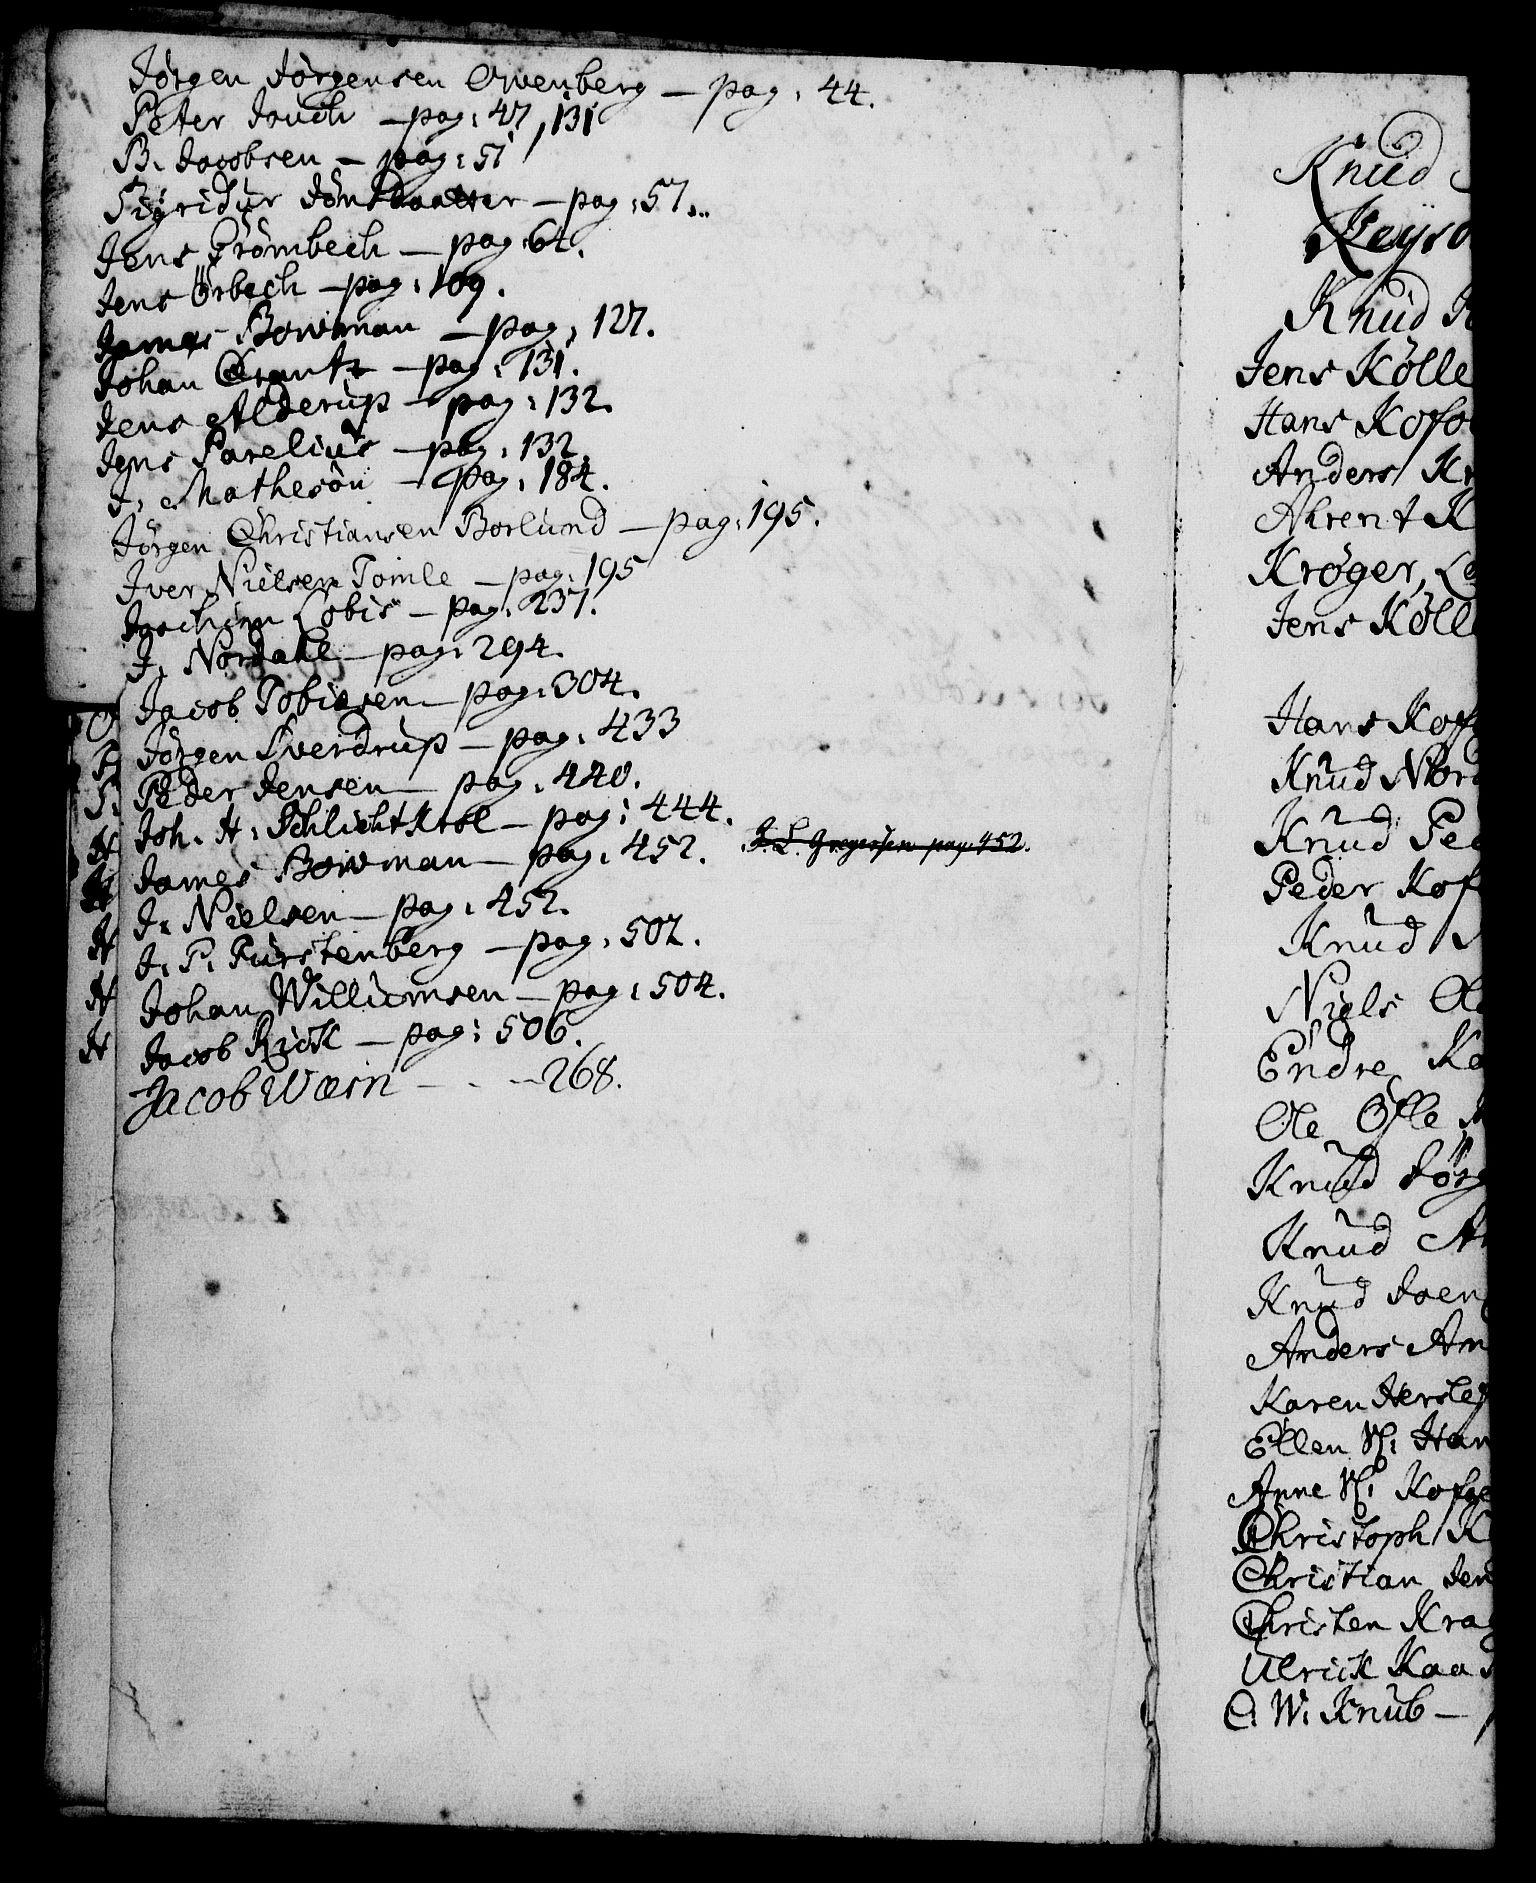 Jörgen Jörgensen Ovenberg – pag: 44.
Peter Jauch – pag: 47, 131
B. Jacobsen – pag: 51
Sigridur Jöns Daatter – pag: 57.
Jens Frömbech – pag: 64.
Jens Örbech – pag: 109.
James Bowman – pag, 127.
Johan Crantz – pag: 131.
Jens Alderup – pag: 132.
Jens Parelius – pag: 132.
J. Matheson – pag: 184.
Jörgen Christiansen Borlund – pag: 195.
Iver Nielsen Tomle – pag: 195
Jochim Cobis – pag: 237.
J. Nordahl – pag: 294.
Jacob Tobiasen – pag: 304.
Jörgen Sverdrup – pag: 433
Peder Jensen – pag: 440.
Joh. H: Schlichtkrol – pag: 444.
James Bowman – pag: 452. J. L. Gregersen pag: 452.
J: Nielsen – pag: 452.
J. P. Fürstenberg – pag: 502.
Johan Williumsen – pag: 504.
Jacob Rick – pag: 506.
Jacob Wærn - - - - 268.
Knud
Keyse
Knud
Jens Kölle
Hans Kofo
Anders Kr
Ahrent K
Kröger,
Jens Köll
Hans Koff
Knud Nord
Knud Ped
Peder Kof
Knud
Niels Ol
Endre Ka
Ole Öfle
Knud Jörg
Knud An
Knud Joen
Anders Am
Karen Hersle
Ellen Sl: Han
Anne Sl: Kofoe
Christoph K
Christian Jen
Christen Krag
Ulrick Kaas
C. W. Knub –